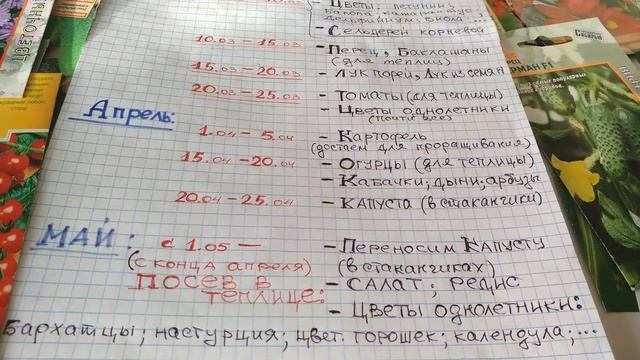 - Цветы: петунии,
- Сельдерей корневой
10.03 – 15.03 - Перец, Баклажаны
(для теплиц)
15.03 – 20.03 - Лук порей, Лук из семян
20.03 – 25.03 - Томаты (для теплицы)
- Цветы однолетники
(почти все)
Апрель:
1.04 – 5.04 - Картофель
(достаем для проращивания)
15.04 – 20.04 - Огурцы (для теплицы)
- Кабачки; дыни; арбузы
20.04 – 25.04 - Капуста (в стаканчики)
Май:
с 1.05 — - Переносим Капусту
(с конца апреля) (в стаканчиках)
Посев в теплице: - Салат; редис
- Цветы однолетники:
Бархатцы; настурция; цвет. горошек; календула;...